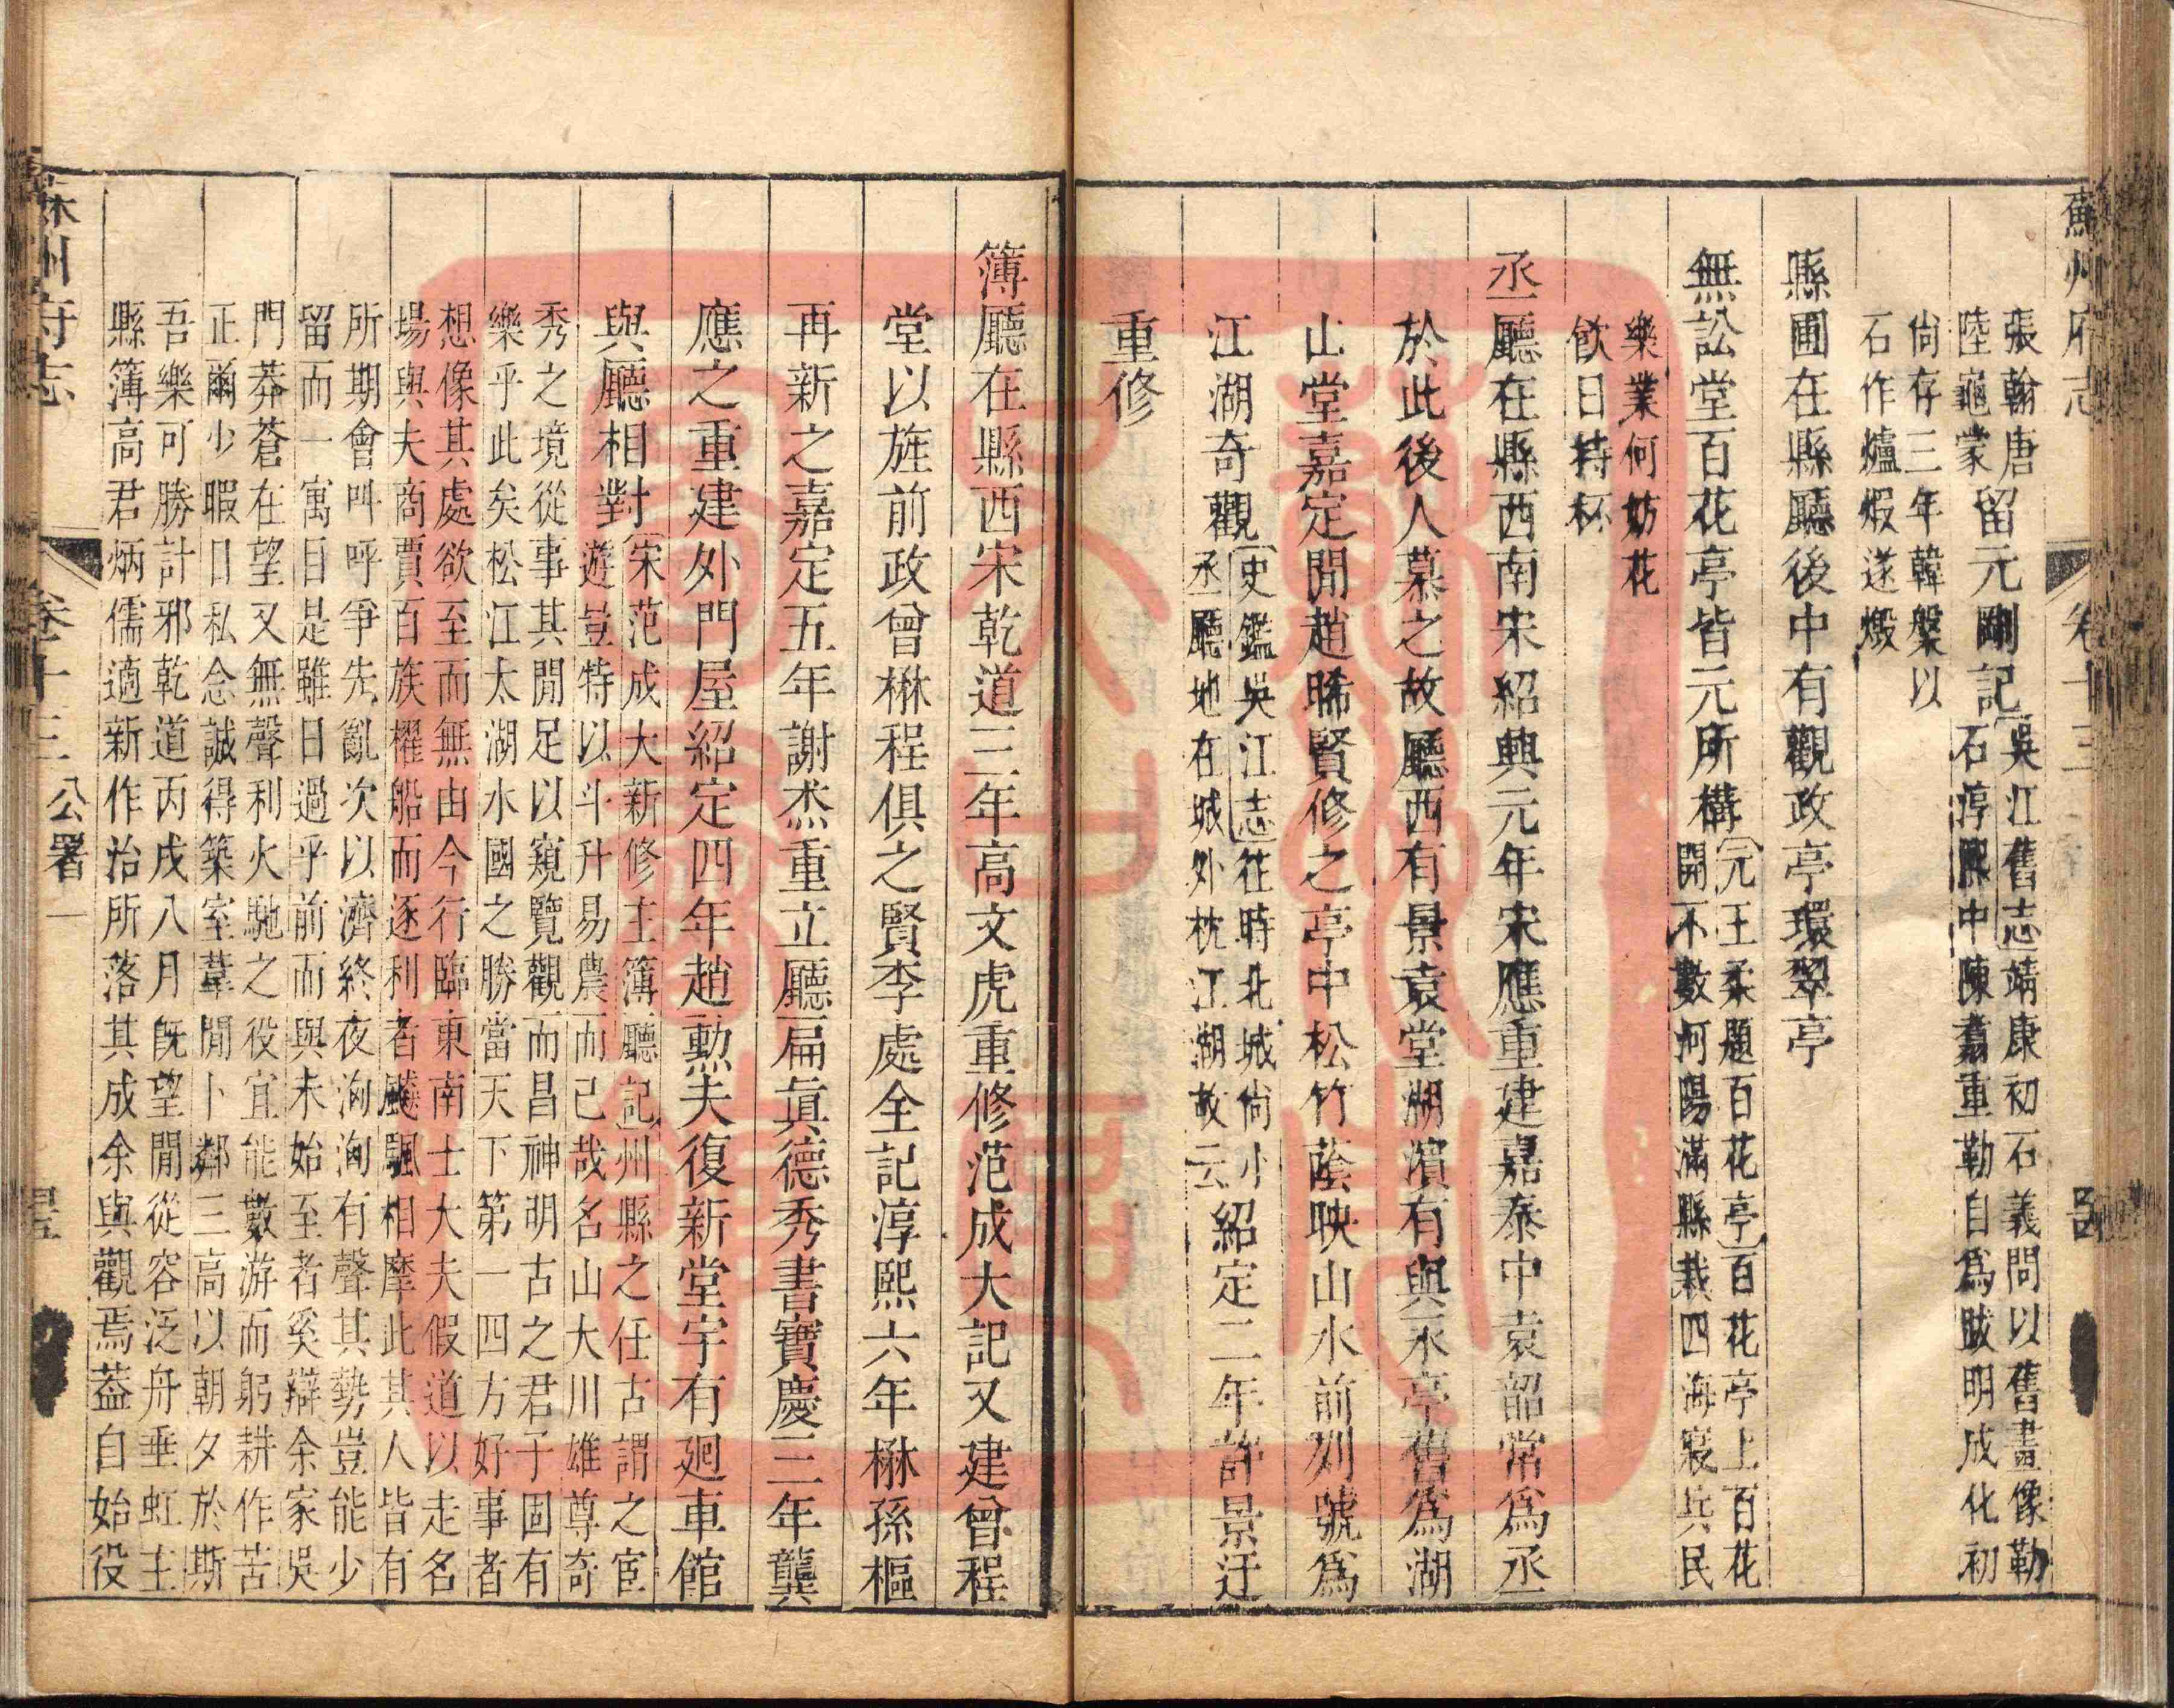 蘇州府志 卷十三
張翰唐
陸龜蒙
留元剛記
吳江舊志靖康初石義問以舊畫像勒
石淳熙中陳翥重勒自爲跋明成化初
尙存三年韓槃以
石作爐煆遂燬
縣圃在縣廳後中有觀政亭環翠亭
無訟堂百花亭皆元所構
元王柔題百花亭百花亭上百花
開不數河陽滿縣栽四海寢兵民
樂業何妨花
飲日持杯
丞廳在縣西南宋紹興元年宋應重建嘉泰中袁韶常爲丞
於此後人慕之故廳西有景袁堂湖濱有與永亭舊爲湖
山堂嘉定閒趙晞賢修之亭中松竹蔭映山水前列號爲
江湖奇觀
史鑑吳江志往時北城尙小
丞廳地在城外枕江湖故云
紹定二年許景迂
重修
簿廳在縣西宋乾道三年高文虎重修范成大記又建曾程
堂以旌前政曾楙程俱之賢李處全記淳熙六年楙孫樞
再新之嘉定五年謝焘重立廳扁眞德秀書寶慶三年龔
應之重建外門屋紹定四年趙勲夫復新堂宇有廻車館
與廳相對
宋范成大新修主簿廳記州縣之任古謂之宦
遊豈特以斗升易農而已哉名山大川雄尊奇
秀之境從事其閒足以窺覽觀而昌神明古之君子固有
樂乎此矣松江太湖水國之勝當天下第一四方好事者
想像其處欲至而無由今行臨東南士大夫假道以走名
場與夫商賈百族櫂船而逐利者颿颿相摩此其人皆有
所期會叫呼爭先亂次以濟終夜洶洶有聲其勢豈能少
留而一寓目是雖日過乎前而與未始至者奚辯余家吳
門莽蒼在望又無聲利火馳之役宜能數游而躬耕作苦
正爾少暇日私念誠得築室葦閒卜鄰三高以朝夕於斯
吾樂可勝計邪乾道丙戌八月旣望閒從容泛舟垂虹主
縣簿高君炳儒適新作治所落其成余與觀焉葢自始役
蘇州府志 卷十三 公署一